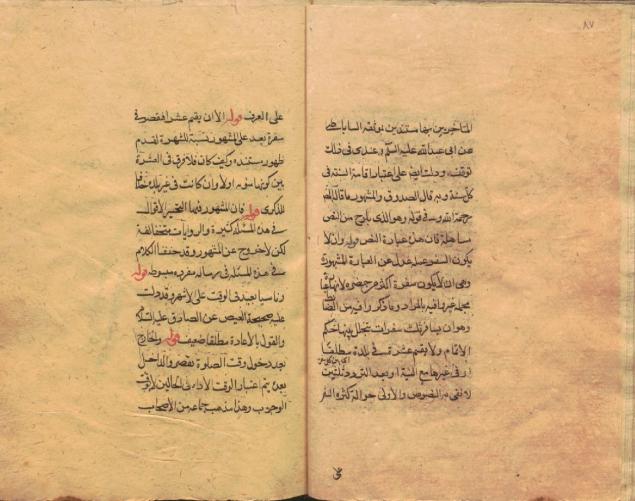 ٨٧
المتأخرين بينهما مستندين بموثقة الساباطي
عن ابي عبدالله عليه السلام وعندي في ذلك
توقف ودلت ايضا على اعتبار اقامة الستة في
كل سنة وبه قال الصدوق والمشهور ما قاله المص
رحمة الله و في قوله وهو الذي يخرج من النص
مساهلة فان هذه عبارة النص قوله وان لا
يكون السفر عدول عن العبارة المشهورة
وهي ان لا يكون سفره اكثر من حضره لانها
مجملة غير وافية بالمراد وما ذكر وافيه من
وهو ان يسافر ثلث سفرات تتخلل بينها حكم
الاتمام ولا يقيم عشرة في بلدة مطلقا
او في غيرها مع النية او بعد التردد ثلثين
من النصوص والاولى حوالة كثرة السفر
على العرف قوله الا ان يقيم عشرا فيقصر في
سفره بعد على المشهور نسبة للشهرة لعدم
ظهور مستنده وكيف كان فلا فرق في العشرة
بين كونها منوية اولا وان كانت في غير بلده خلافا
للذكرى قوله فان المشهور فيها التخيير الاقوال
في هذه المسئلة كثيرة والروايات متخالفة
لكن لا خروج عن المشهور وقد حققنا الكلام
في هذه المسئلة في رسالة مفردة مبسوطة قوله
وناسيا يعيد في الوقت على الاشهر وقد دلت
عليه صحيحة العيص عن الصادق عليه السلام
والقول بالاعادة مطلقا ضعيف قوله والخارج
بعد دخول وقت الصلوة يقصر والداخل
بعده يتم اعتبار الوقت الاداء في الحالين لا بوقت
الوجوب وهذا مذهب جماعة من الاصحاب